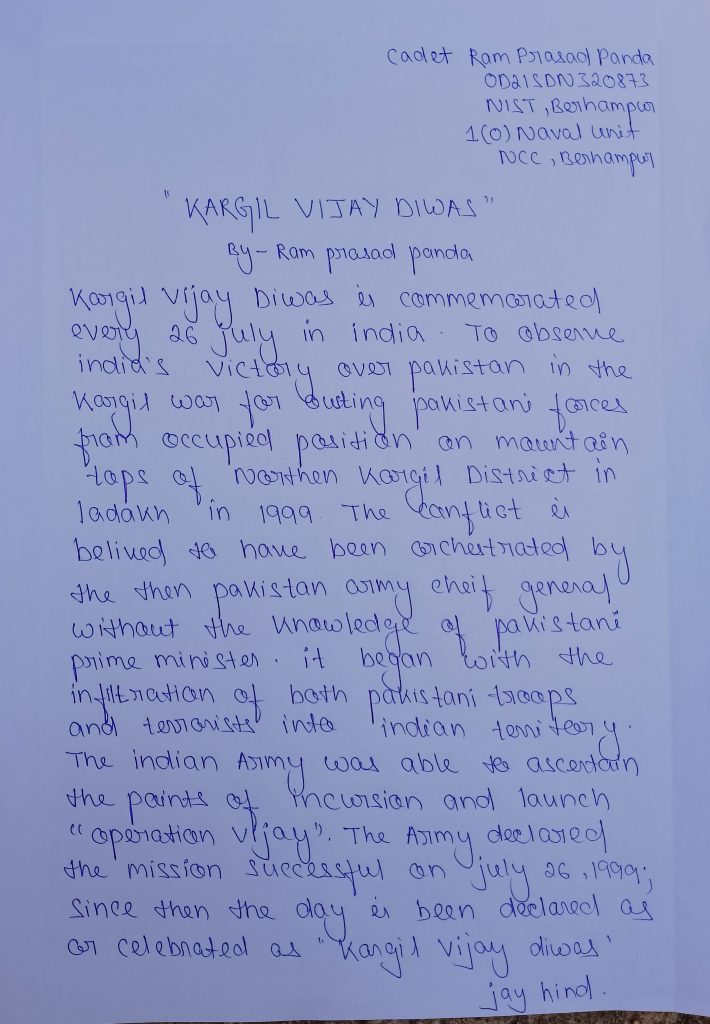 Cadet Ram Prasad Panda
OD21SDN320873
NIST, Berhampur
1(O) Naval Unit
NCC, Berhampur
"KARGIL VIJAY DIWAS"
By- Ram prasad panda
Kargil Vijay Diwas is commemorated
every 26 july in india. To observe
india's victory over pakistan in the
Kargil war for ousting pakistani forces
from occupied position on mountain
tops of Northen Kargil District in
ladakh in 1999. The conflict is
belived to have been orchestrated by
the then pakistan army cheif general
without the knowledge of pakistani
prime minister. it began with the
infiltration of both pakistani troops
and terrorists into indian territory.
The indian Army was able to ascertain
the points of incursion and launch
"operation vijay". The Army declared
the mission successful on july 26, 1999;
Since then the day is been declared as
or celebrated as "Kargil vijay diwas'
jay hind.